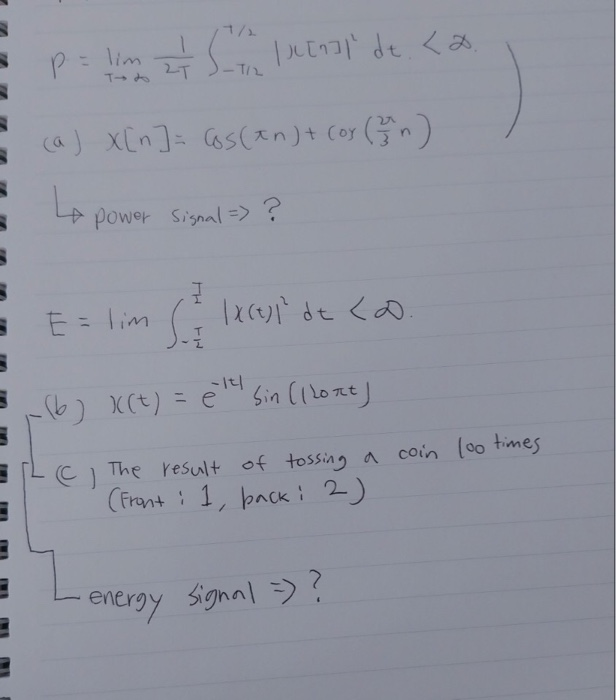 P = lim T→∞ 1/2T ∫_{-T/2}^{T/2} |x[n]|² dt. < ∞.
(a) x[n] = cos(πn) + cos(2π/3 n)
↳ power signal => ?
E = lim ∫_{-T/2}^{T/2} |x(t)|² dt < ∞.
(b) x(t) = e^{-|t|} sin(120πt)
(c) The result of tossing a coin 100 times
(Front : 1, back : 2)
energy signal => ?